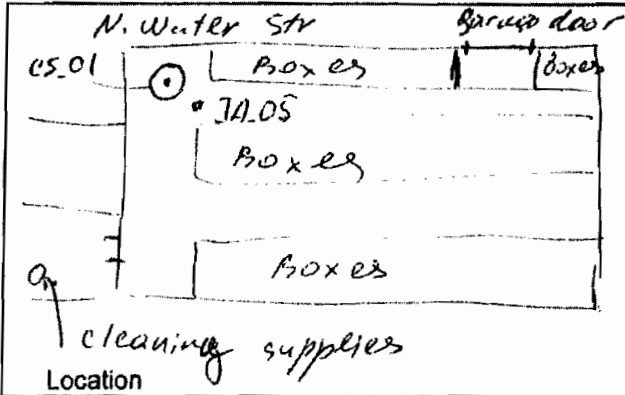 N. Water Str Garage door
CS_01 Boxes Boxes
IA_05
Boxes
Boxes
cleaning supplies
Location